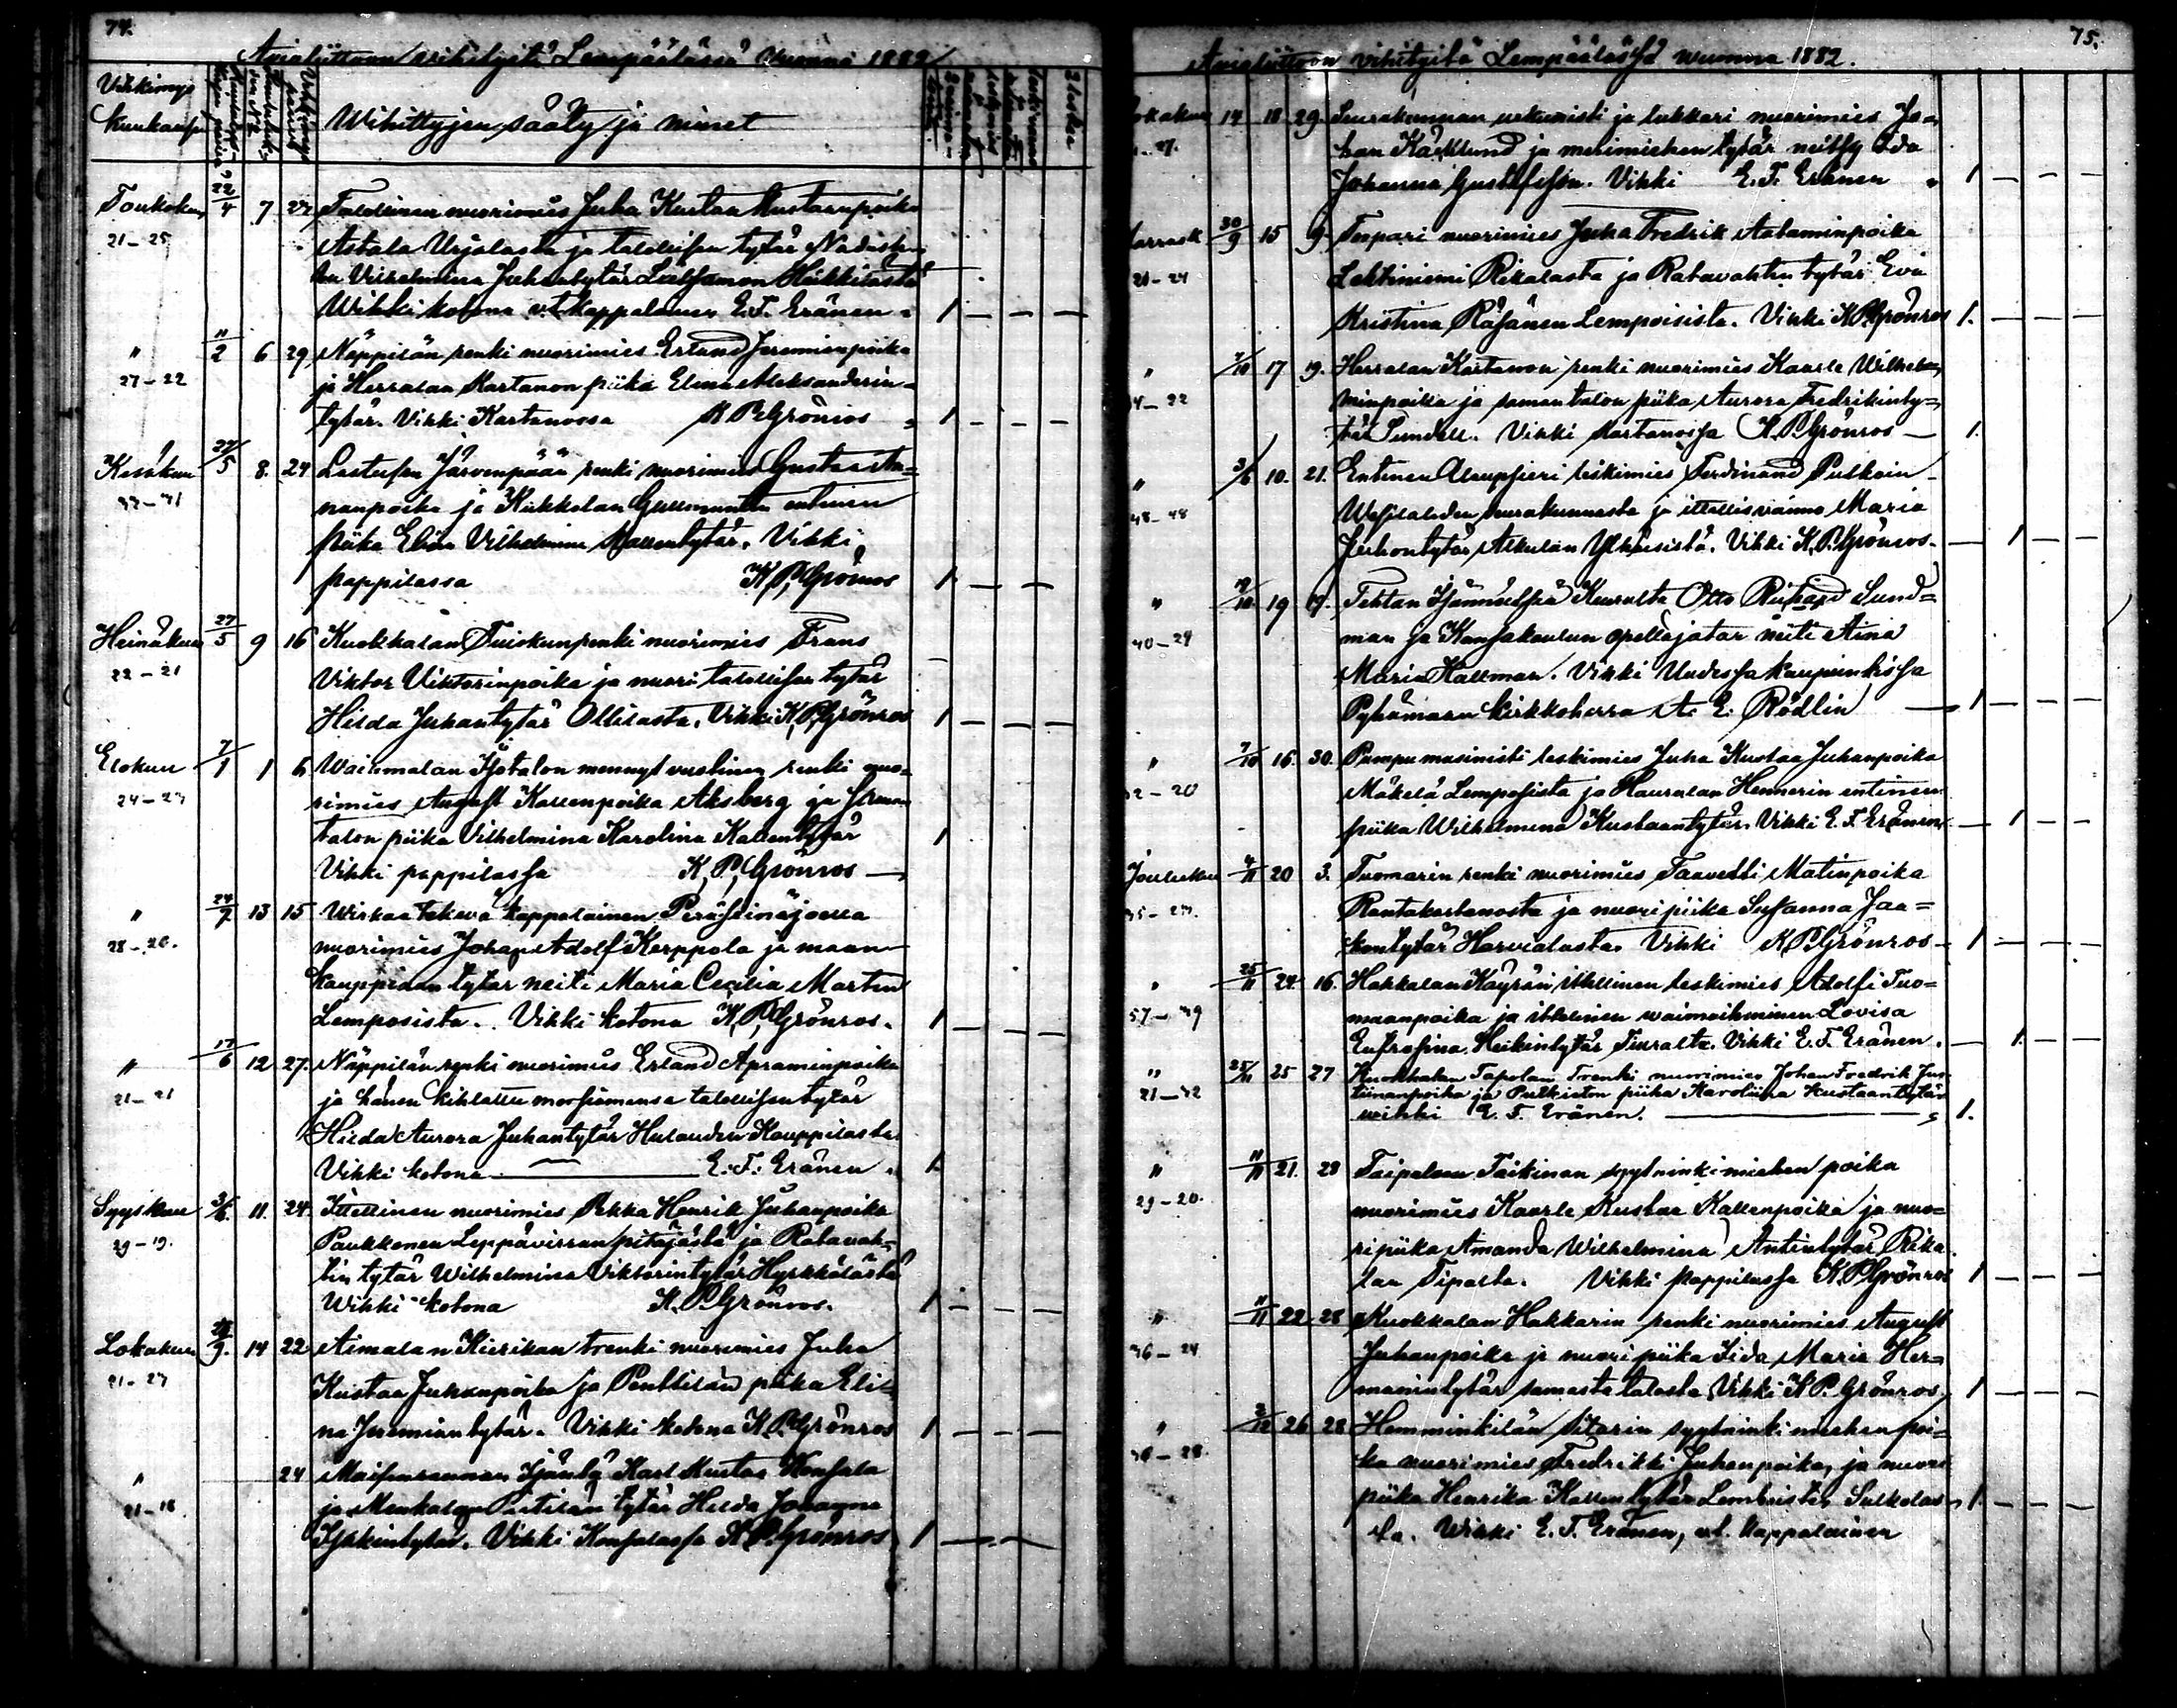 74.
Awioliittoon vihityitä Lempäälässä Vuonna 1882
Vihkimys kuukausi
Wihittyjen sääty ja nimet
Toukokuu 22/4 7 27 Talollinen nuorimies Juha Kustaa Kustaanpoika
21-25 Astala Urjalasta ja talollisen tytär
Vilhelmina Juhontytär
Wihki kotona v.t. kappalainen E. F. Eränen 1 — — —
" 11/2 6 29 Näppilän renki nuorimies Erland Jeremianpoika
27-22 ja Herralan Kartanon piika Elina Aleksanderin-
tytär. Vihki Kartanossa K. P. Grönros 1 — — —
Kesäkuu 27/5 8. 24 Järvenpään renki nuorimies
nanpoika ja Kuokkalan entinen
piika Elina Vilhelmiina Kallentytär. Vihki
pappilassa K. P. Grönros 1 — —
Heinäkuu 27/5 9 16 Kuokkalan Tuiskun renki nuorimies Frans
22-21 Viktor Viktorinpoika ja nuori talollisen tytär
Hilda Juhantytär Ollilasta. Vihki K. P. Grönros 1 — — —
Elokuu 7/1 1 6 Waihmalan Isotalon mennyt vuotinen renki nuo-
24-27 rimies August Kallenpoika Aksberg ja saman
talon piika Vilhelmina Karolina Kallentytär 1
Vihki pappilassa K. P. Grönros —
" 24/7 13 15 Wirkaa tekevä kappalainen Peräseinäjoella
28-26. nuorimies Johan Adolf Korppola ja maan
kauppiaan tytär neiti Maria Cecilia Marten
Lemposista. Vihki kotona K. P. Grönros. 1 — — —
" 17/6 12 27. Näppilän renki nuorimies Erland Apraminpoika
21-21 ja hänen kihlattu morsiamensa talollisen tytär
Hilda Aurora Juhantytär Hulauden Kauppilasta
Vihki kotona — E. F. Eränen 1
Syyskuu 3/6. 11. 24. Itsellinen nuorimies Pekka Henrik Juhanpoika
29-19. Paukkonen Leppävirran pitäjästä ja Ratavah-
tin tytär Wilhelmina Viktorintytär Hyrkkälästä
Wihki kotona K. P. Grönros. 1 — — —
Lokakuu 9. 14 22 Aimalan Kierikan trenki nuorimies Juha
21-27 Kustaa Juhanpoika ja Penttilän piika Eli-
na Jeremiantytär. Vihki kotona K. P. Grönros 1 — — —
" 24 Isäntä Karl Kustaa
21-18 ja tytär Hilda Johanna
Vihki K. P. Grönros 1 — —
75.
Awioliittoon vihityitä Lempäälässä wuonna 1882.
Lokakuu 14 18 29. Seurakunnan urkuristi ja lukkari nuorimies Jo-
han Käcklund ja merimiehen tytär neitsy Ida
Johanna Gustafsson. Vihki E. F. Eränen 1 — — —
30/9 15 9 Torpari nuorimies Juha Fredrik Aataminpoika
21-24 Lehtiniemi Rikalasta ja Ratavahtin tytär Eva
Kristina Räsänen Lempoisista. Vihki K. P. Grönros 1. — — —
" 7/10 17 19. Herralan Kartanon renki nuorimies Kaarle Wilhel-
minpoika ja saman talon piika Aurora Fredrikinty-
tär Sundell. Vihki Kartanossa K. P. Grönros — 1.
" 3/6 10. 21. Entinen leskimies Ferdinand Pulkoin
48-48 seurakunnasta ja itsellisvaimo Maria
Juhontytär Alkulan Ylhäisistä. Vihki K. P. Grönros. — 1 — —
" 19/10 19 19. Tehtan Isännöitsiä Kuuralta Otto Richard Sund-
40-24 man ja Kansakoulun opettajatar neiti Aina
Maria Hallman. Vihki Uudessa kaupunkissa
Pyhämaan kirkkoherra A. E. Rödlin — 1 — — —
" 7/10 16. 30. Pumpumasinisti leskimies Juha Kustaa Juhanpoika
Mäkelä Lemposista ja Kuuralan Hennerin entinen
piika Wilhelmina Kustaantytär. Vihki E. F. Eränen — 1 — —
Joulukuu 4/11 20 3. Tuomarin renki nuorimies Taavetti Matinpoika
Rantakartanosta ja nuori piika Susanna Jaa-
kontytär Harvialasta. Vihki K. P. Grönros — 1 — — —
" 25/11 24. 16. Hakkalan Käyrän itsellinen leskimies Adolfi Tuo-
57-49 maanpoika ja itsellinen waimoihminen Lovisa
Eufrosina Heikintytär Kuuralta. Vihki E. F. Eränen. — 1. — —
" 25/11 25 27 Kuokkalan Tapolan Trenki nuorimies Johan Fredrik Jus-
21-42 tiinanpoika ja Pulkiston piika Karoliina Kustaantytär
wihki E. F. Eränen. — 1.
" 11/11 21. 28 Taipaleen Taikinan syytninkimiehen poika
29-20. nuorimies Kaarle Kustaa Kallenpoika ja nuo-
ripiika Amanda Wilhelmina Antintytär Rika-
lan Sipalta. Vihki pappilassa K. P. Grönros 1 — — —
" 11/11 22 28 Kuokkalan Hakkarin renki nuorimies August
Juhanpoika ja nuori piika Iida Maria Her-
manintytär samasta talosta. Vihki K. P. Grönros 1 — — —
" 2/12 26 28 Hemminkilän Sitarin syytninkimiehen poi-
ka nuorimies Fredrikki Juhanpoika, ja nuori
piika Henrika Kallentytär 1. — — —
ta. Wihki E. F. Eränen, v.t. kappalainen